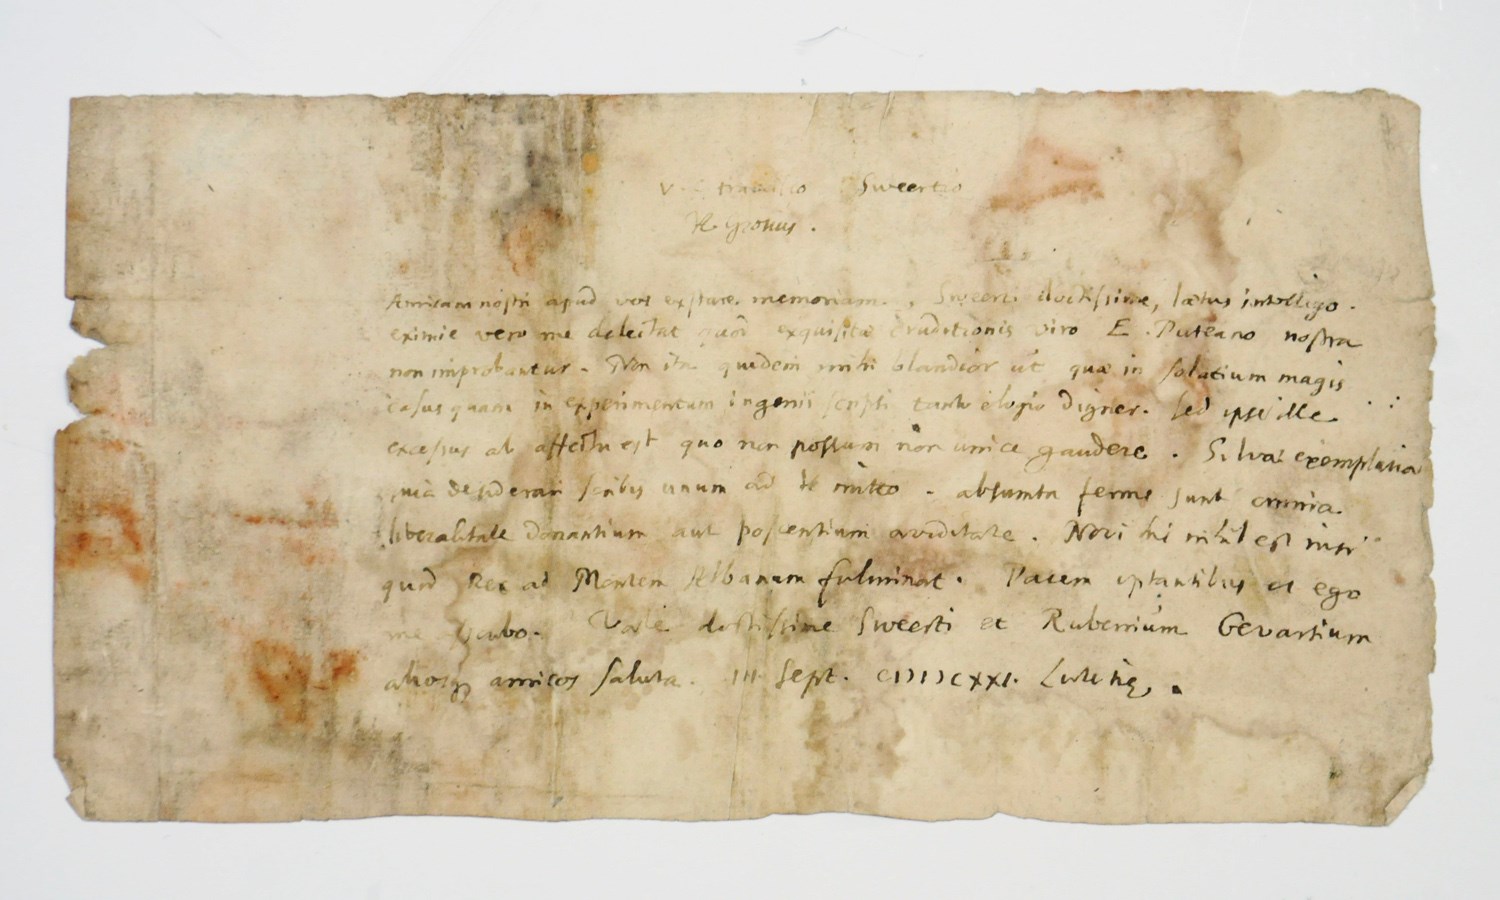 Sweertio
H Grotius.
nostri apud vos exstare memoriam, Sweerti doctissime, lætus intelligo.
eximie vero me delectat quòd exquisitæ eruditionis viro E. Puteano nostra
non improbantur. Non ita quidem mihi blandior ut quæ in solatium magis
casus quam in experimentum ingenii scripsi tanto elogio digner. Sed ipse ille
excessus ab affectu est quo non possum non unice gaudere. Silvæ exemplaria
quia desiderari scribis unum ad te mitto. absumta ferme sunt omnia
liberalitate donantium aut poscentium aviditate. Novi hic nihil est nisi
quod Rex ad Montem Albanum fulminat. Pacem optantibus et ego
me Vale doctissime Sweerti et Rubenium Gevartium
aliosq amicos saluta. III Sept. CIↃIↃCXXI. Lutetiæ.